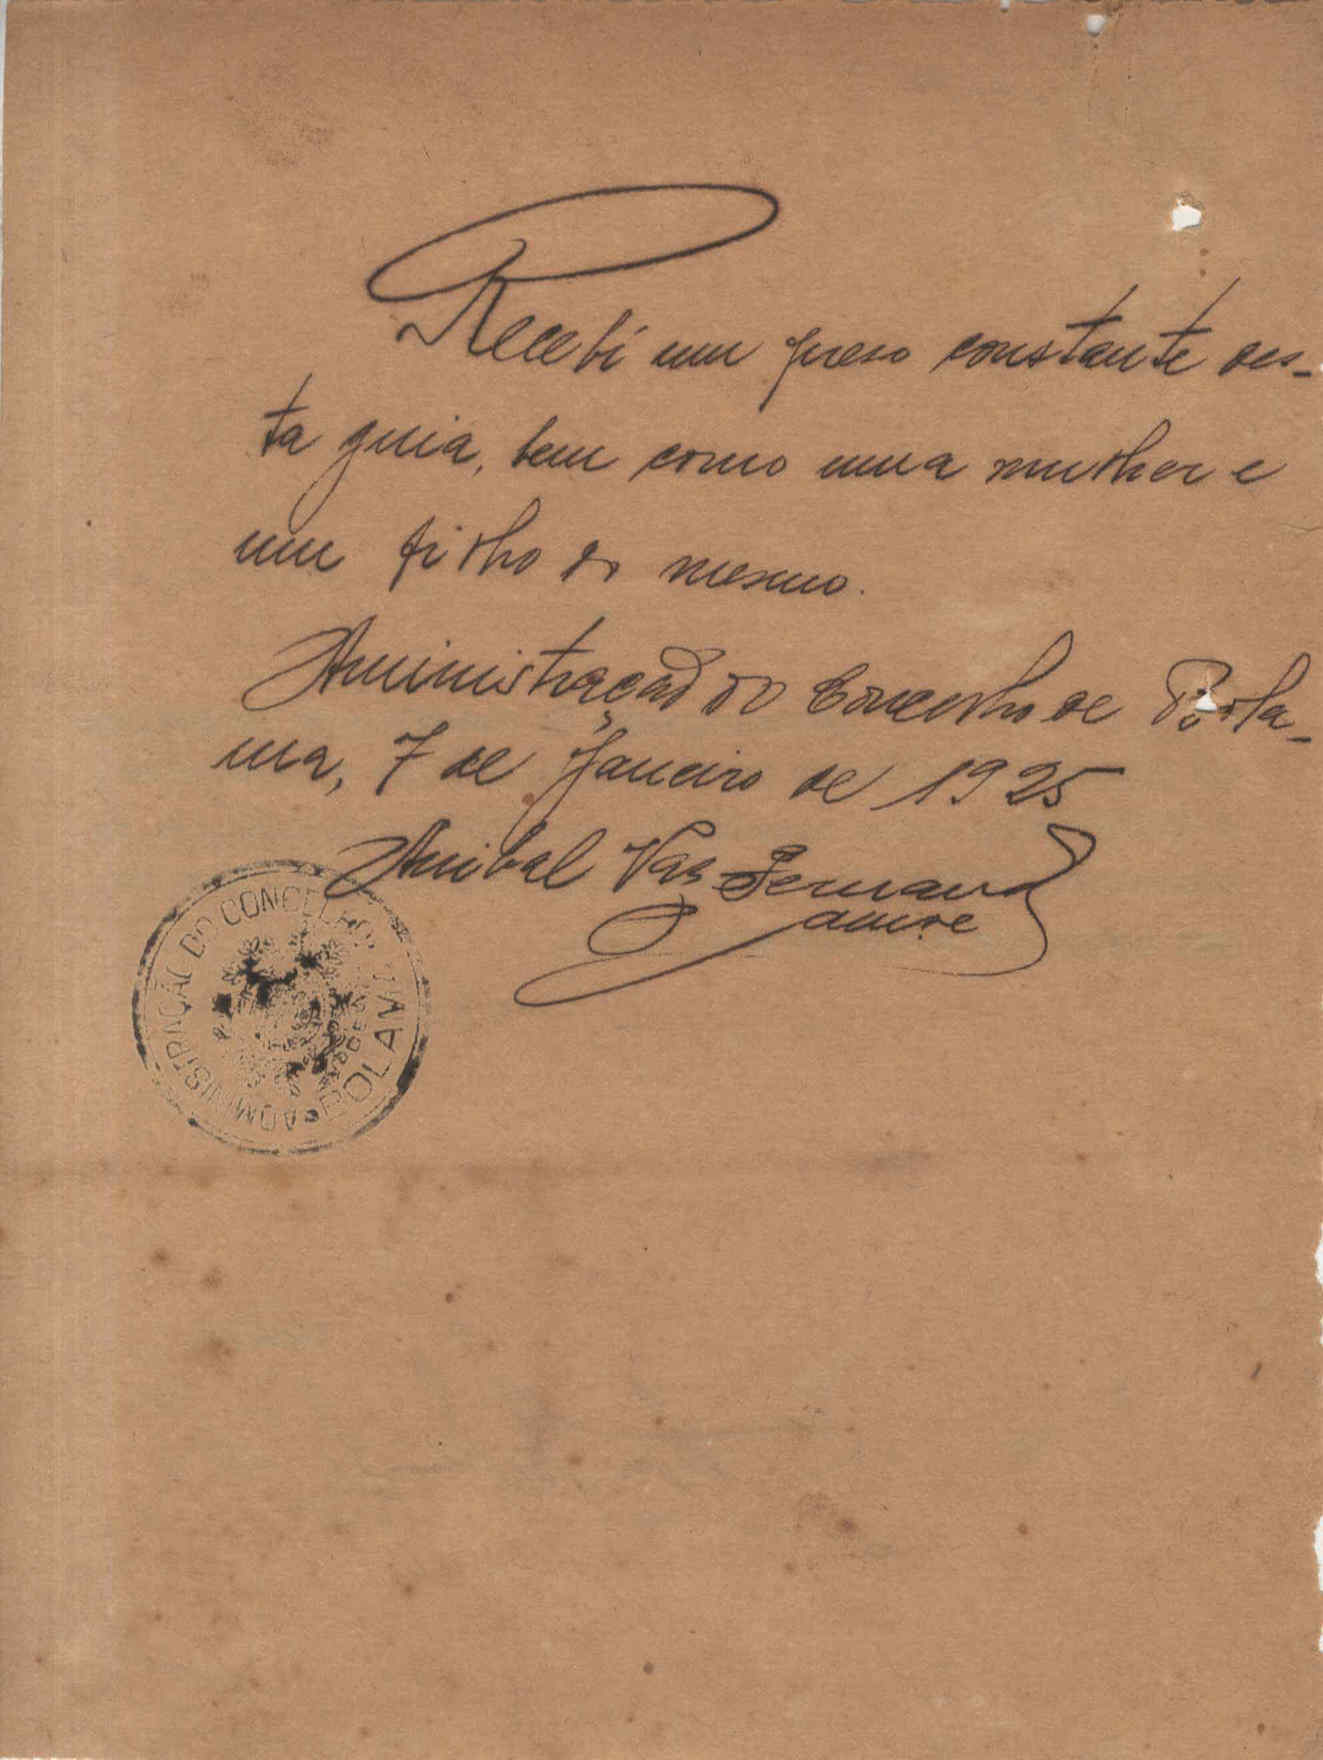 Recebi um preso constante des-
ta guia, bem como uma mulher e
um filho do mesmo.
Administração do Concelho de Bola-
ma, 7 de Janeiro de 1925
Anibal Vaz Fernand
ADMINISTRAÇÃO DO CONCELHO
BOLAMA